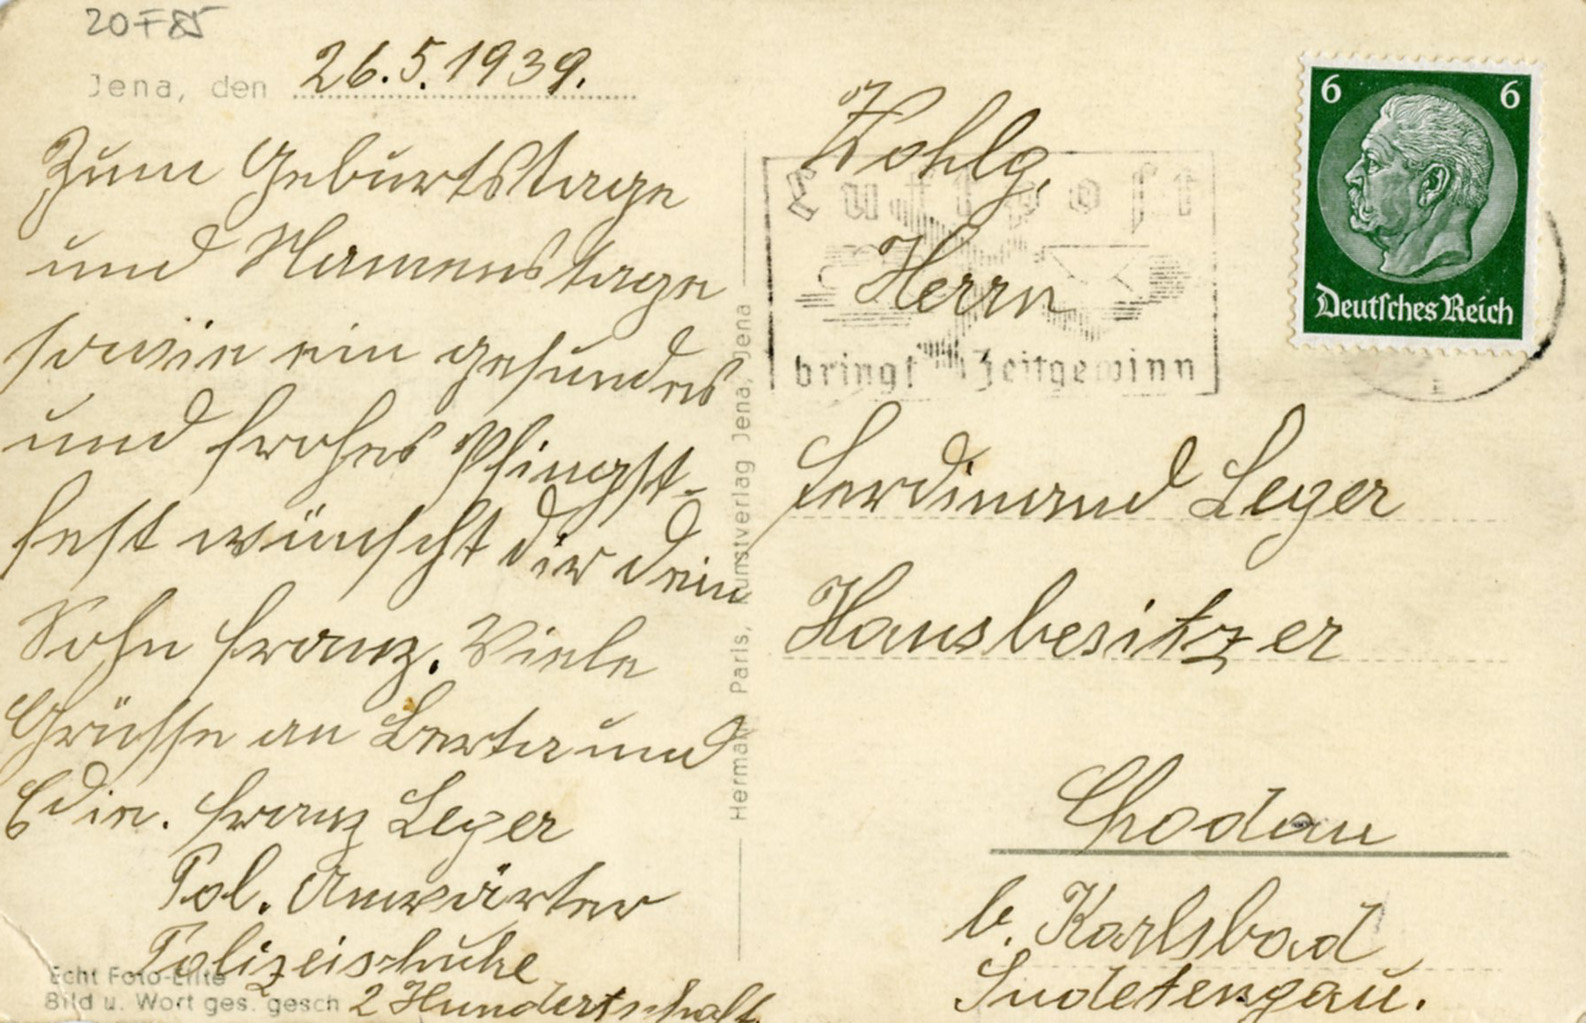 20F85
Jena, den 26.5.1939.
Zum Geburtstage
und Namenstage
sowie ein gesundes
und frohes Pfingst-
fest wünscht dir dein
Sohn Franz. Viele
Grüsse an Berta und
Edin. Franz Leger
Pol. Anwärter
Polizeischule
2 Hundertschaft
Echt Foto-Elite
Bild u. Wort ges. gesch
Hermann Paris, Kunstverlag Jena, Jena
6 6
Deutsches Reich
Luftpost
bringt Zeitgewinn
Wohlg.
Herrn
Ferdinand Leger
Hausbesitzer
Chodau
b. Karlsbad
Sudetengau.